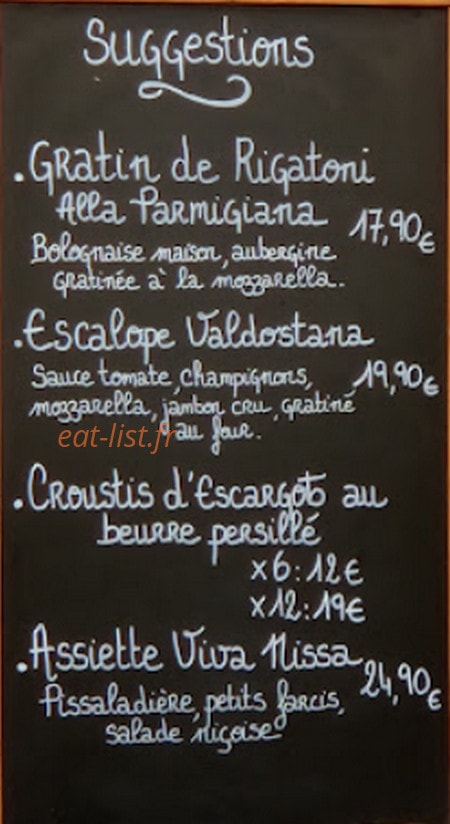 Suggestions
. Gratin de Rigatoni
Alla Parmigiana 17,90€
Bolognaise maison, aubergine
gratinée à la mozzarella.
. Escalope Valdostana
Sauce tomate, champignons, 19,90€
mozzarella, jambon cru, gratiné
au four.
eat-list.fr
. Croustis d'Escargots au
beurre persillé
x6: 12€
x12: 19€
. Assiette Viva Nissa
24,90€
Pissaladière, petits farcis,
salade niçoise